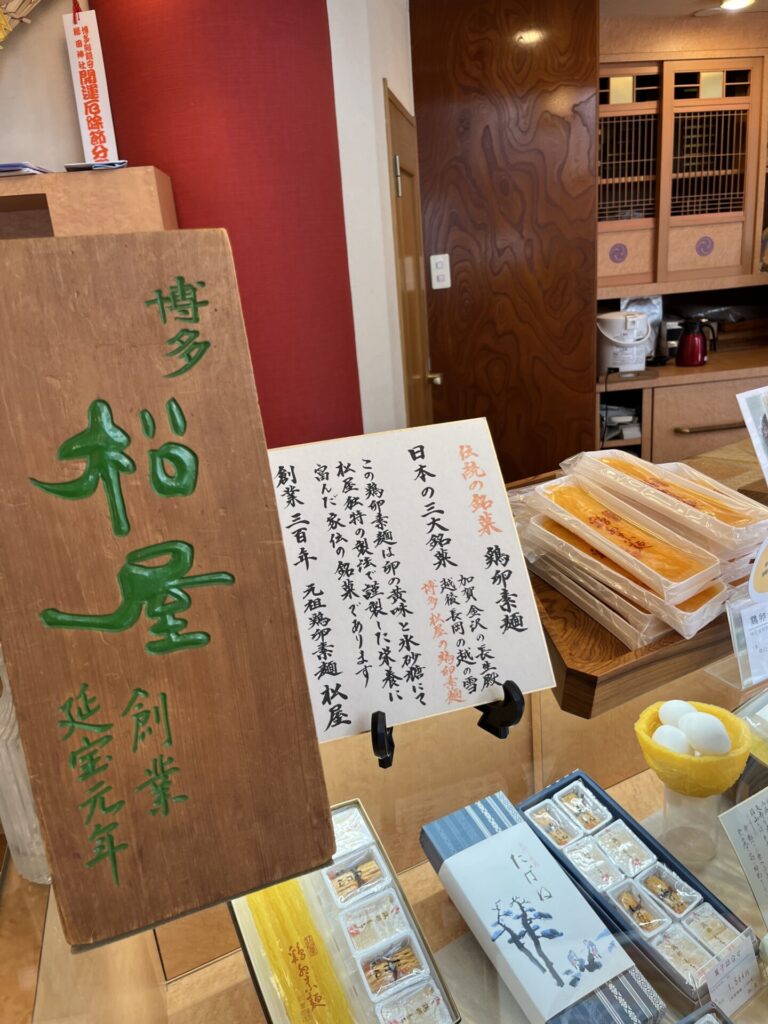 開運厄除節分
博多
松屋
創業
延宝元年
伝統の銘菓 鶏卵素麺
日本の三大銘菓
加賀金沢の長生殿
越後長岡の越の雪
博多松屋の鶏卵素麺
この鶏卵素麺は卵の黄味と氷砂糖にて
松屋独特の製法で謹製した栄養に
富んだ家伝の銘菓であります
創業三百年 元祖鶏卵素麺 松屋
鶏卵素麺
たばね